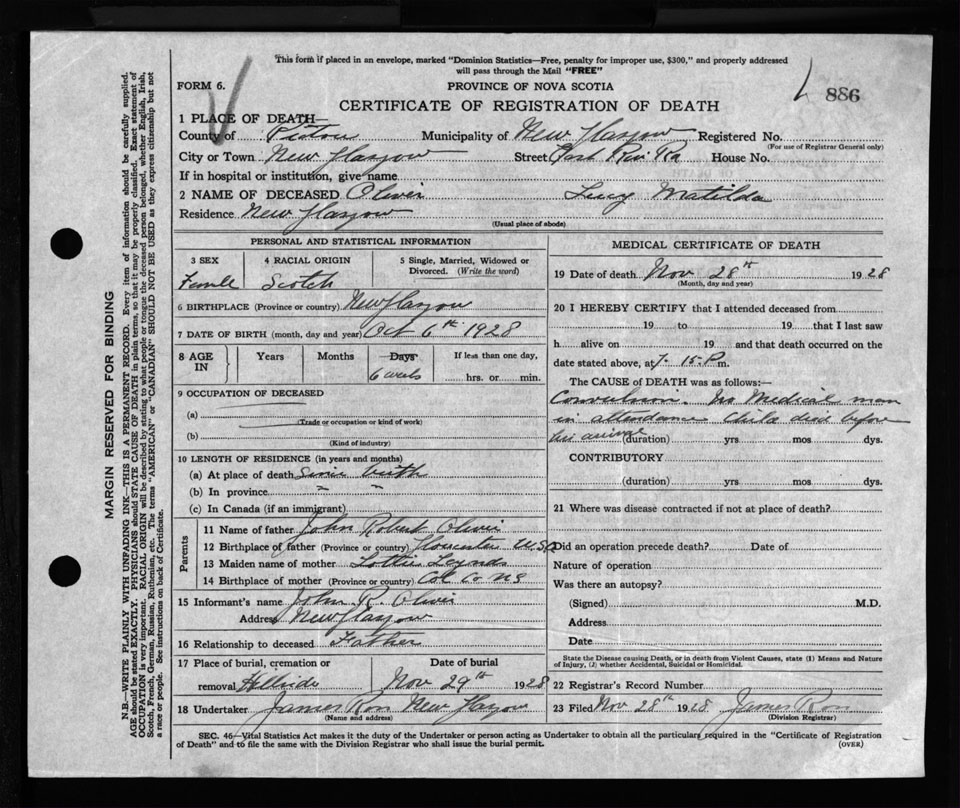 This form if placed in an envelope, marked "Dominion Statistics—Free, penalty for improper use, $300," and properly addressed
will pass through the Mail "FREE"
FORM 6.
PROVINCE OF NOVA SCOTIA
886
CERTIFICATE OF REGISTRATION OF DEATH
1 PLACE OF DEATH—
County of Pictou Municipality of New Glasgow Registered No.
(For use of Registrar General only)
City or Town New Glasgow Street East Riv. Rd House No.
If in hospital or institution, give name
2 NAME OF DECEASED Oliver Lucy Matilda
Residence New Glasgow
(Usual place of abode)
PERSONAL AND STATISTICAL INFORMATION
3 SEX 4 RACIAL ORIGIN 5 Single, Married, Widowed or
Divorced. (Write the word)
Female Scotch
6 BIRTHPLACE (Province or country) New Glasgow
7 DATE OF BIRTH (month, day and year) Oct 6th 1928
8 AGE IN Years Months Days If less than one day,
6 weeks hrs. or min.
9 OCCUPATION OF DECEASED
(a)
(Trade or occupation or kind of work)
(b)
(Kind of industry)
10 LENGTH OF RESIDENCE (in years and months)
(a) At place of death Since birth
(b) In province " "
(c) In Canada (if an immigrant)
Parents
11 Name of father John Robert Oliver
12 Birthplace of father (Province or country) Gloucester U.S.A
13 Maiden name of mother Lottie
14 Birthplace of mother (Province or country) Col Co NS
15 Informant's name John R. Oliver
Address New Glasgow
16 Relationship to deceased Father
17 Place of burial, cremation or Date of burial
removal Hillside Nov 29th 1928
18 Undertaker James New Glasgow
(Name and address)
MEDICAL CERTIFICATE OF DEATH
19 Date of death Nov 28th 1928
(Month, day and year)
20 I HEREBY CERTIFY that I attended deceased from
19 to 19 that I last saw
h alive on 19 and that death occurred on the
date stated above, at 7-15-P m.
The CAUSE of DEATH was as follows:—
Convulsions. No Medical man
in attendance child died before
his arrival (duration) yrs mos dys.
CONTRIBUTORY
(duration) yrs mos dys.
21 Where was disease contracted if not at place of death?
Did an operation precede death? Date of
Nature of operation
Was there an autopsy?
(Signed) M.D.
Address
Date
State the Disease causing Death, or in death from Violent Causes, state (1) Means and Nature
of Injury, (2) whether Accidental, Suicidal or Homicidal.
22 Registrar's Record Number
23 Filed Nov 28th 1928 James
(Division Registrar)
SEC. 46—Vital Statistics Act makes it the duty of the Undertaker or person acting as Undertaker to obtain all the particulars required in the "Certificate of Registration
of Death" and to file the same with the Division Registrar who shall issue the burial permit.
(OVER)
MARGIN RESERVED FOR BINDING
N.B.—WRITE PLAINLY WITH UNFADING INK—THIS IS A PERMANENT RECORD. Every item of information should be carefully supplied.
AGE should be stated EXACTLY. PHYSICIANS should STATE CAUSE OF DEATH in plain terms, so that it may be properly classified. Exact statement of
OCCUPATION is very important. RACIAL ORIGIN will be described by stating to what people or tongue the deceased person belonged, whether English, Irish,
Scotch, French, German, Russian, Ruthenian, etc. The terms "AMERICAN" or "CANADIAN" SHOULD NOT BE USED as they express citizenship but not
a race or people. See instructions on back of Certificate.